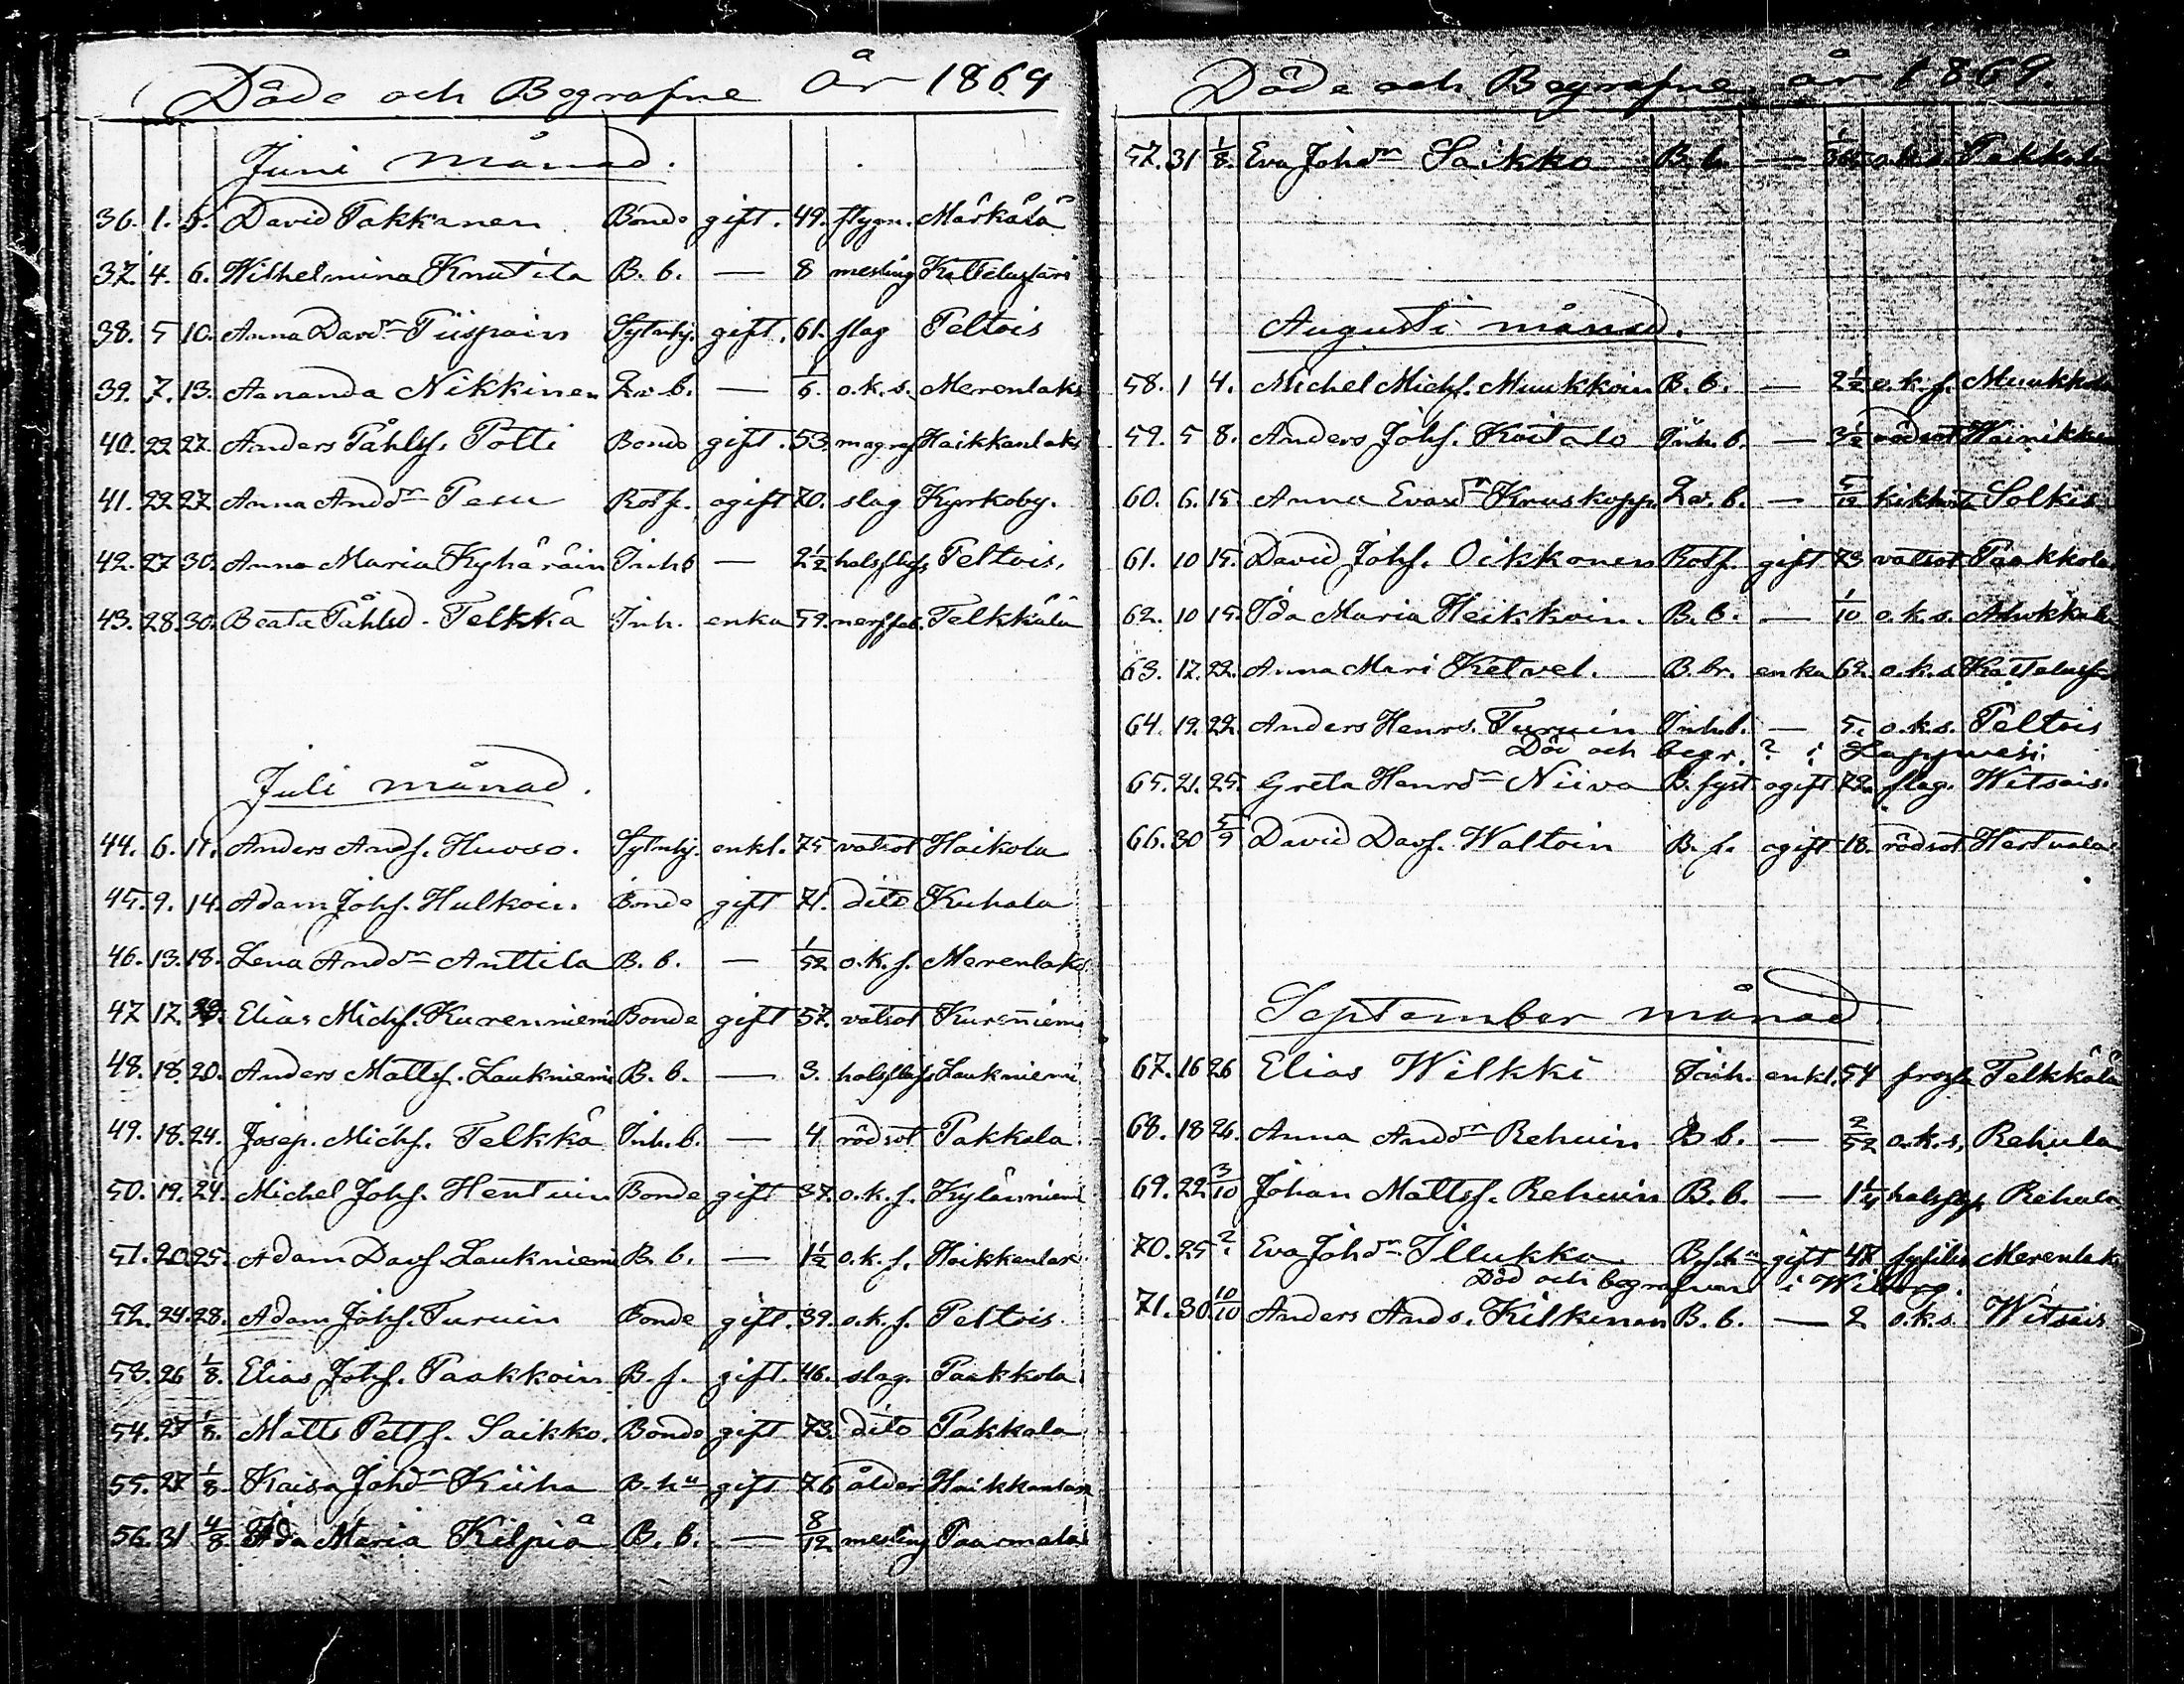 Döde och Begrafne år 1869
Juni månad.
36. 1. 5. David Pakkanen Bonde gift. 49. flygn. Märkälä
37. 4. 6. Wilhelmina Knutila B. b. — 8 mesling Kattelusjärvi
38. 5 10. Anna Davdr Piispain Sytnhj. gift. 61. slag Peltois
39. 7. 13. Amanda Nikkinen Lö. b. — 1/6. o.k.s. Merenlaks
40. 22 27. Anders Påhlss. Potti Bonde gift. 53. magref Haikkanlaks
41. 22. 27 Anna Anddr Pesu Rotf. ogift 70. slag Kyrkoby.
42. 27 30. Anna Maria Kyhäräin Inh.b — 2 1/2 halsfluss Peltois.
43. 28. 30. Beata Påhlsd. Telkkä Inh. enka 59. nerffeb. Telkkälä
Juli månad.
44. 6. 11. Anders Ands. Huoso. Sytnhj. enkl. 75 vatsot Haikola
45. 9. 14. Adam Johs. Hulkoin. Bonde gift 71. dito Kuhala
46. 13. 18. Lena Anddr Anttila B. b. — 1/52 o.k.s. Merenlaks
47 17. Elias Michs. Kurenniemi Bonde gift 57. vatsot Kurenniemi
48. 18. 20. Anders Mattss. Laukniemi B. b. — 3. halsfluss Laukniemi
49. 18. 24. Josep. Michs. Telkkä Inh. b. — 4 rödsot Pakkola.
50. 19. 24. Michel Johs. Hentuin Bonde gift 37. o.k.s. Kyläniemi
51. 20. 25. Adam Davs. Laukniemi B. b. — 1 1/2 o.k.s. Haikkanlax
52. 24. 28. Adam Johs. Turuin Bonde gift. 39. o.k.s. Peltois.
53. 26 1/8. Elias Johs. Paakkoin B. s. gift. 46. slag. Paakkola
54. 27 1/8. Matts Petts. Saikko. Bonde gift 73. dito Pakkala
55. 27 1/8. Kaisa Johdr Kiiha B. hu gift 76 ålder Haikkanlax
56. 31 4/8. Ida Maria Kilpiä B. b. — 8/12 mesling Paarmala
Döde och Begrafne år 1869.
57. 31 1/8. Eva Johdr Saikko B. b. — Pakkala
Augusti månad.
58. 1 4. Michel Michs. Muukkoin B. b. — 2 1/2 o.k.s. Muukkola
59. 5 8. Anders Johs. Koitalo Inh. b. — 3 1/2 rödsot Wainikka
60. 6. 15. Anna Evasdr Kruskopp. Lö. b. — 5/12 kikhosta Solkis
61. 10 15. David Johs. Oikkonen Rotf. gift 73 vatsot Paakkola.
62. 10 15. Ida Maria Heikkoin. B. b. — 1/10 o.k.s.
63. 17. 22. Anna Mari Ketvel. B. br. enka 62. o.k.s. Kattelusjär
64. 19. 22. Anders Henrs. Turuin Inh.b. — 5. o.k.s. Peltois
Död och begr. ? i Lappvesi.
65. 21. 25. Greta Henrdr Niiva B. syst. ogift 72. slag. Witsais.
66. 30 5/9 David Davs. Waltoin B. s. ogift 18. rödsot Hertuala
September månad.
67. 16 26 Elias Wilkki Inh. enkl. 54 frossa Telkkälä
68. 18 26. Anna Anddr Rehuin B b. — 2/52 o.k.s, Rehula
69. 22. 3/10 Johan Mattss. Rehuin B. b. — 1 1/4 halsfls. Rehula
70. 25 ?. Eva Johdr Illukka B.s.hu gift 47 syfilis Merenlak
Död och begrafven i Wiborg.
71. 30 10/10 Anders Ands. Kilkinen B. b. — 2 o.k.s. Witsais